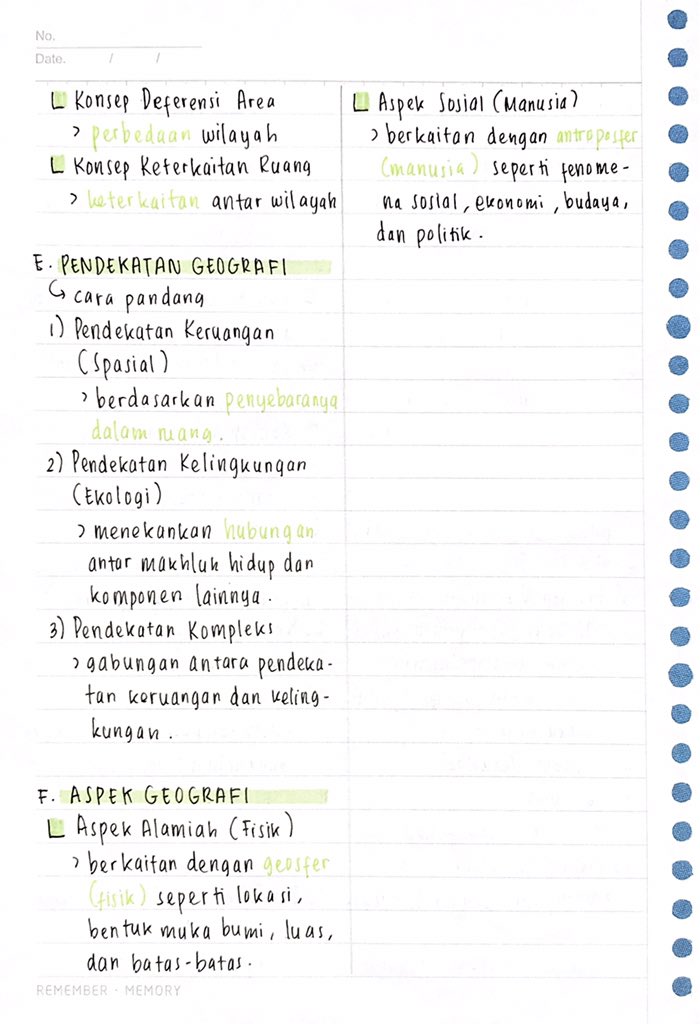 No.
Date. / /
Konsep Deferensi Area
> perbedaan wilayah
Konsep Keterkaitan Ruang
> keterkaitan antar wilayah
E. PENDEKATAN GEOGRAFI
↳ cara pandang
1) Pendekatan Keruangan
(Spasial)
> berdasarkan penyebaranya
dalam ruang.
2) Pendekatan Kelingkungan
(Ekologi)
> menekankan hubungan
antar makhluk hidup dan
komponen lainnya.
3) Pendekatan Kompleks
> gabungan antara pendeka-
tan keruangan dan keling-
kungan.
F. ASPEK GEOGRAFI
Aspek Alamiah (Fisik)
> berkaitan dengan geosfer
(fisik) seperti lokasi,
bentuk muka bumi, luas,
dan batas-batas.
Aspek Sosial (Manusia)
> berkaitan dengan antroposfer
(manusia) seperti fenome-
na sosial, ekonomi, budaya,
dan politik.
REMEMBER - MEMORY